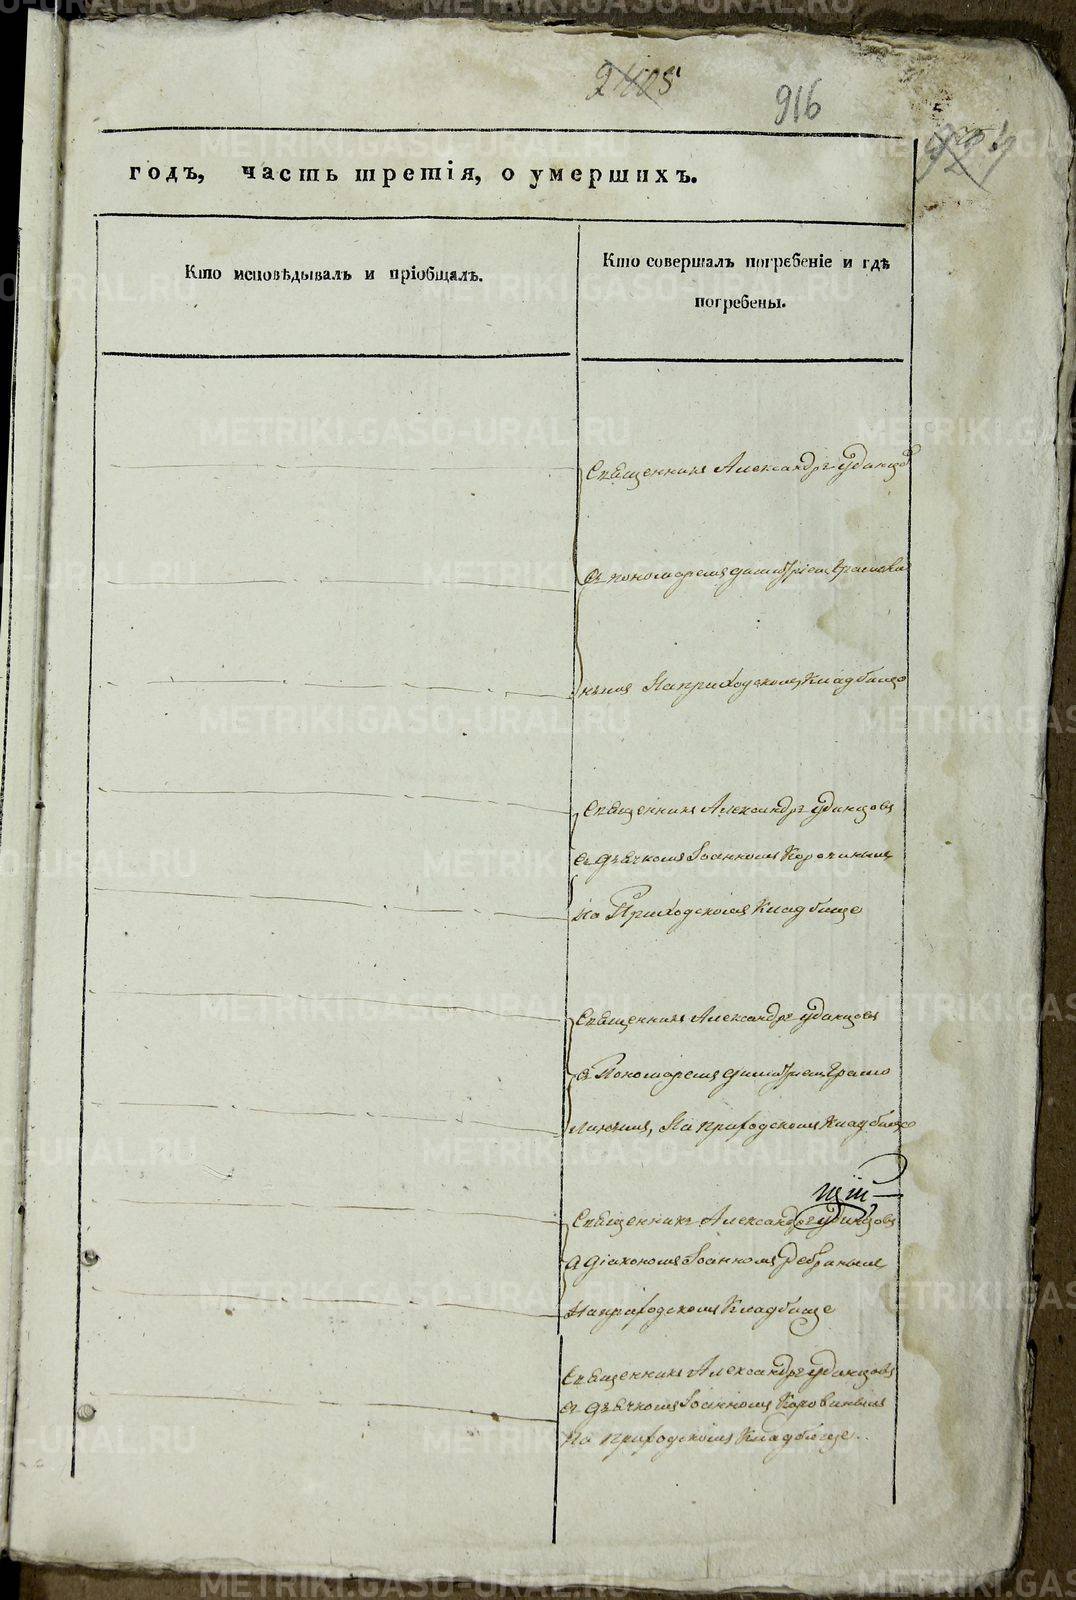 916
годъ, часть третія, о умершихъ.
Кто исповѣдывалъ и пріобщалъ.
Кто совершалъ погребеніе и гдѣ
погребены.
Священникъ Александръ Удинцо
Съ пономаремъ Димитріемъ
нымъ На приходскомъ Кладбище
Священникъ Александръ Удинцовъ
съ дьячкомъ Іоанномъ Коровинымъ
На Приходскомъ Кладбище
Священникъ Александръ Удинцовъ
съ Пономаремъ Димитріемъ
На приходскомъ Кладбище
Священникъ Александръ Удинцовъ
Діакономъ Іоанномъ
На приходскомъ Кладбище
Священникъ Александръ Удинцовъ
съ дьячкомъ Іоанномъ Коровинымъ
На приходскомъ Кладбище.
METRIKI.GASO-URAL.RU